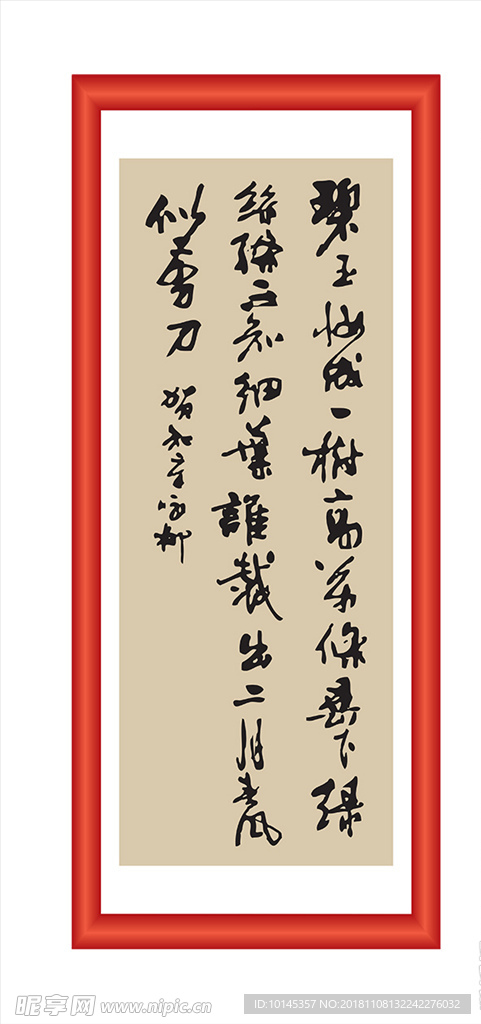 碧玉妝成一樹高萬條垂下綠
絲絛不知細葉誰裁出二月春風
似剪刀
賀知章詠柳
昵享网 www.nipic.cn
ID:10145357 NO:20181108132242276032